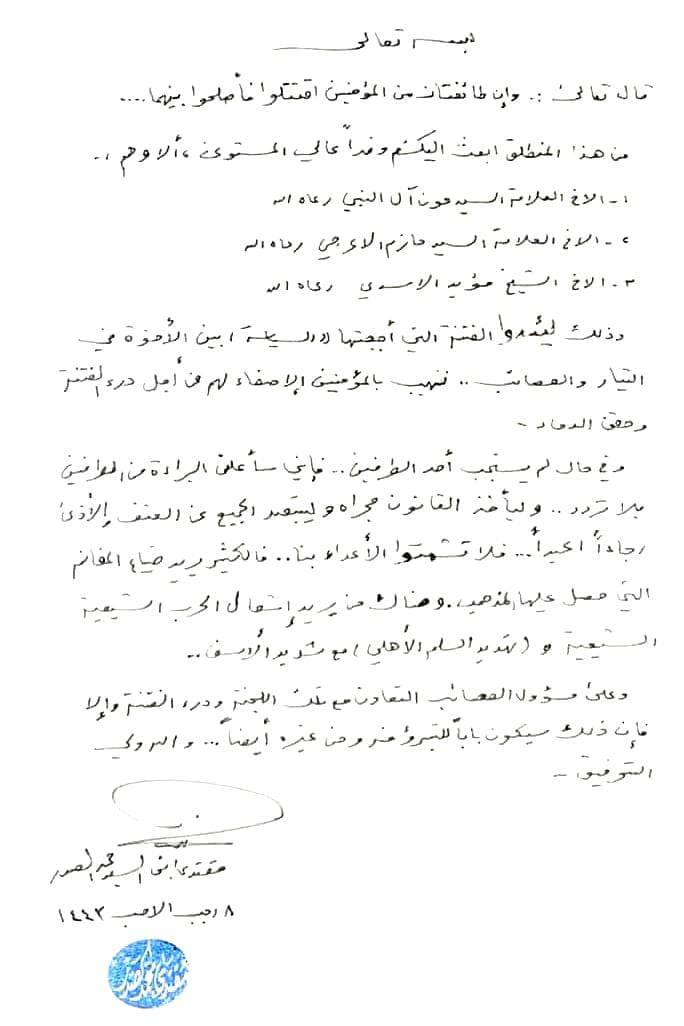 بسمه تعالى
قال تعالى :. وإن طائفتان من المؤمنين اقتتلوا فأصلحوا بينهما....
من هذا المنطلق ابعث اليكم وفداً عالي المستوى ، ألا وهم :.
١- الاخ العلامة السيد عون آل النبي رعاه الله
٢- الاخ العلامة السيد حازم الاعرجي رعاه الله
٣- الاخ الشيخ مؤيد الاسدي رعاه الله
وذلك ليئدوا الفتنة التي أججتها ((السياسة)) بين الأخوة في
التيار والعصائب .. فنهيب بالمؤمنين الإصغاء لهم من أجل درء الفتنة
وحقن الدماء -
وفي حال لم يستجب أحد الطرفين .. فإني سأعلن البراءة من الطرفين
بلا تردد .. وليأخذ القانون مجراه وليبتعد الجميع عن العنف والأذى
رجاءاً اكيداً... فلا تشمتوا الأعداء بنا.. فالكثير يريد ضياع المغانم
التي حصل عليها المذهب.. وهناك من يريد إشعال الحرب الشيعية
الشيعية و (تهديد السلم الأهلي) مع شديد الأسف ..
وعلى مسؤول العصائب التعاون مع تلك اللجنة ودرء الفتنة وإلا
فإن ذلك سيكون باباً للتبرؤ منه ومن غيره أيضاً... والله ولي
التوفيق -
مقتدى ابن السيد محمد الصدر
٨ رجب الاصب ١٤٤٣